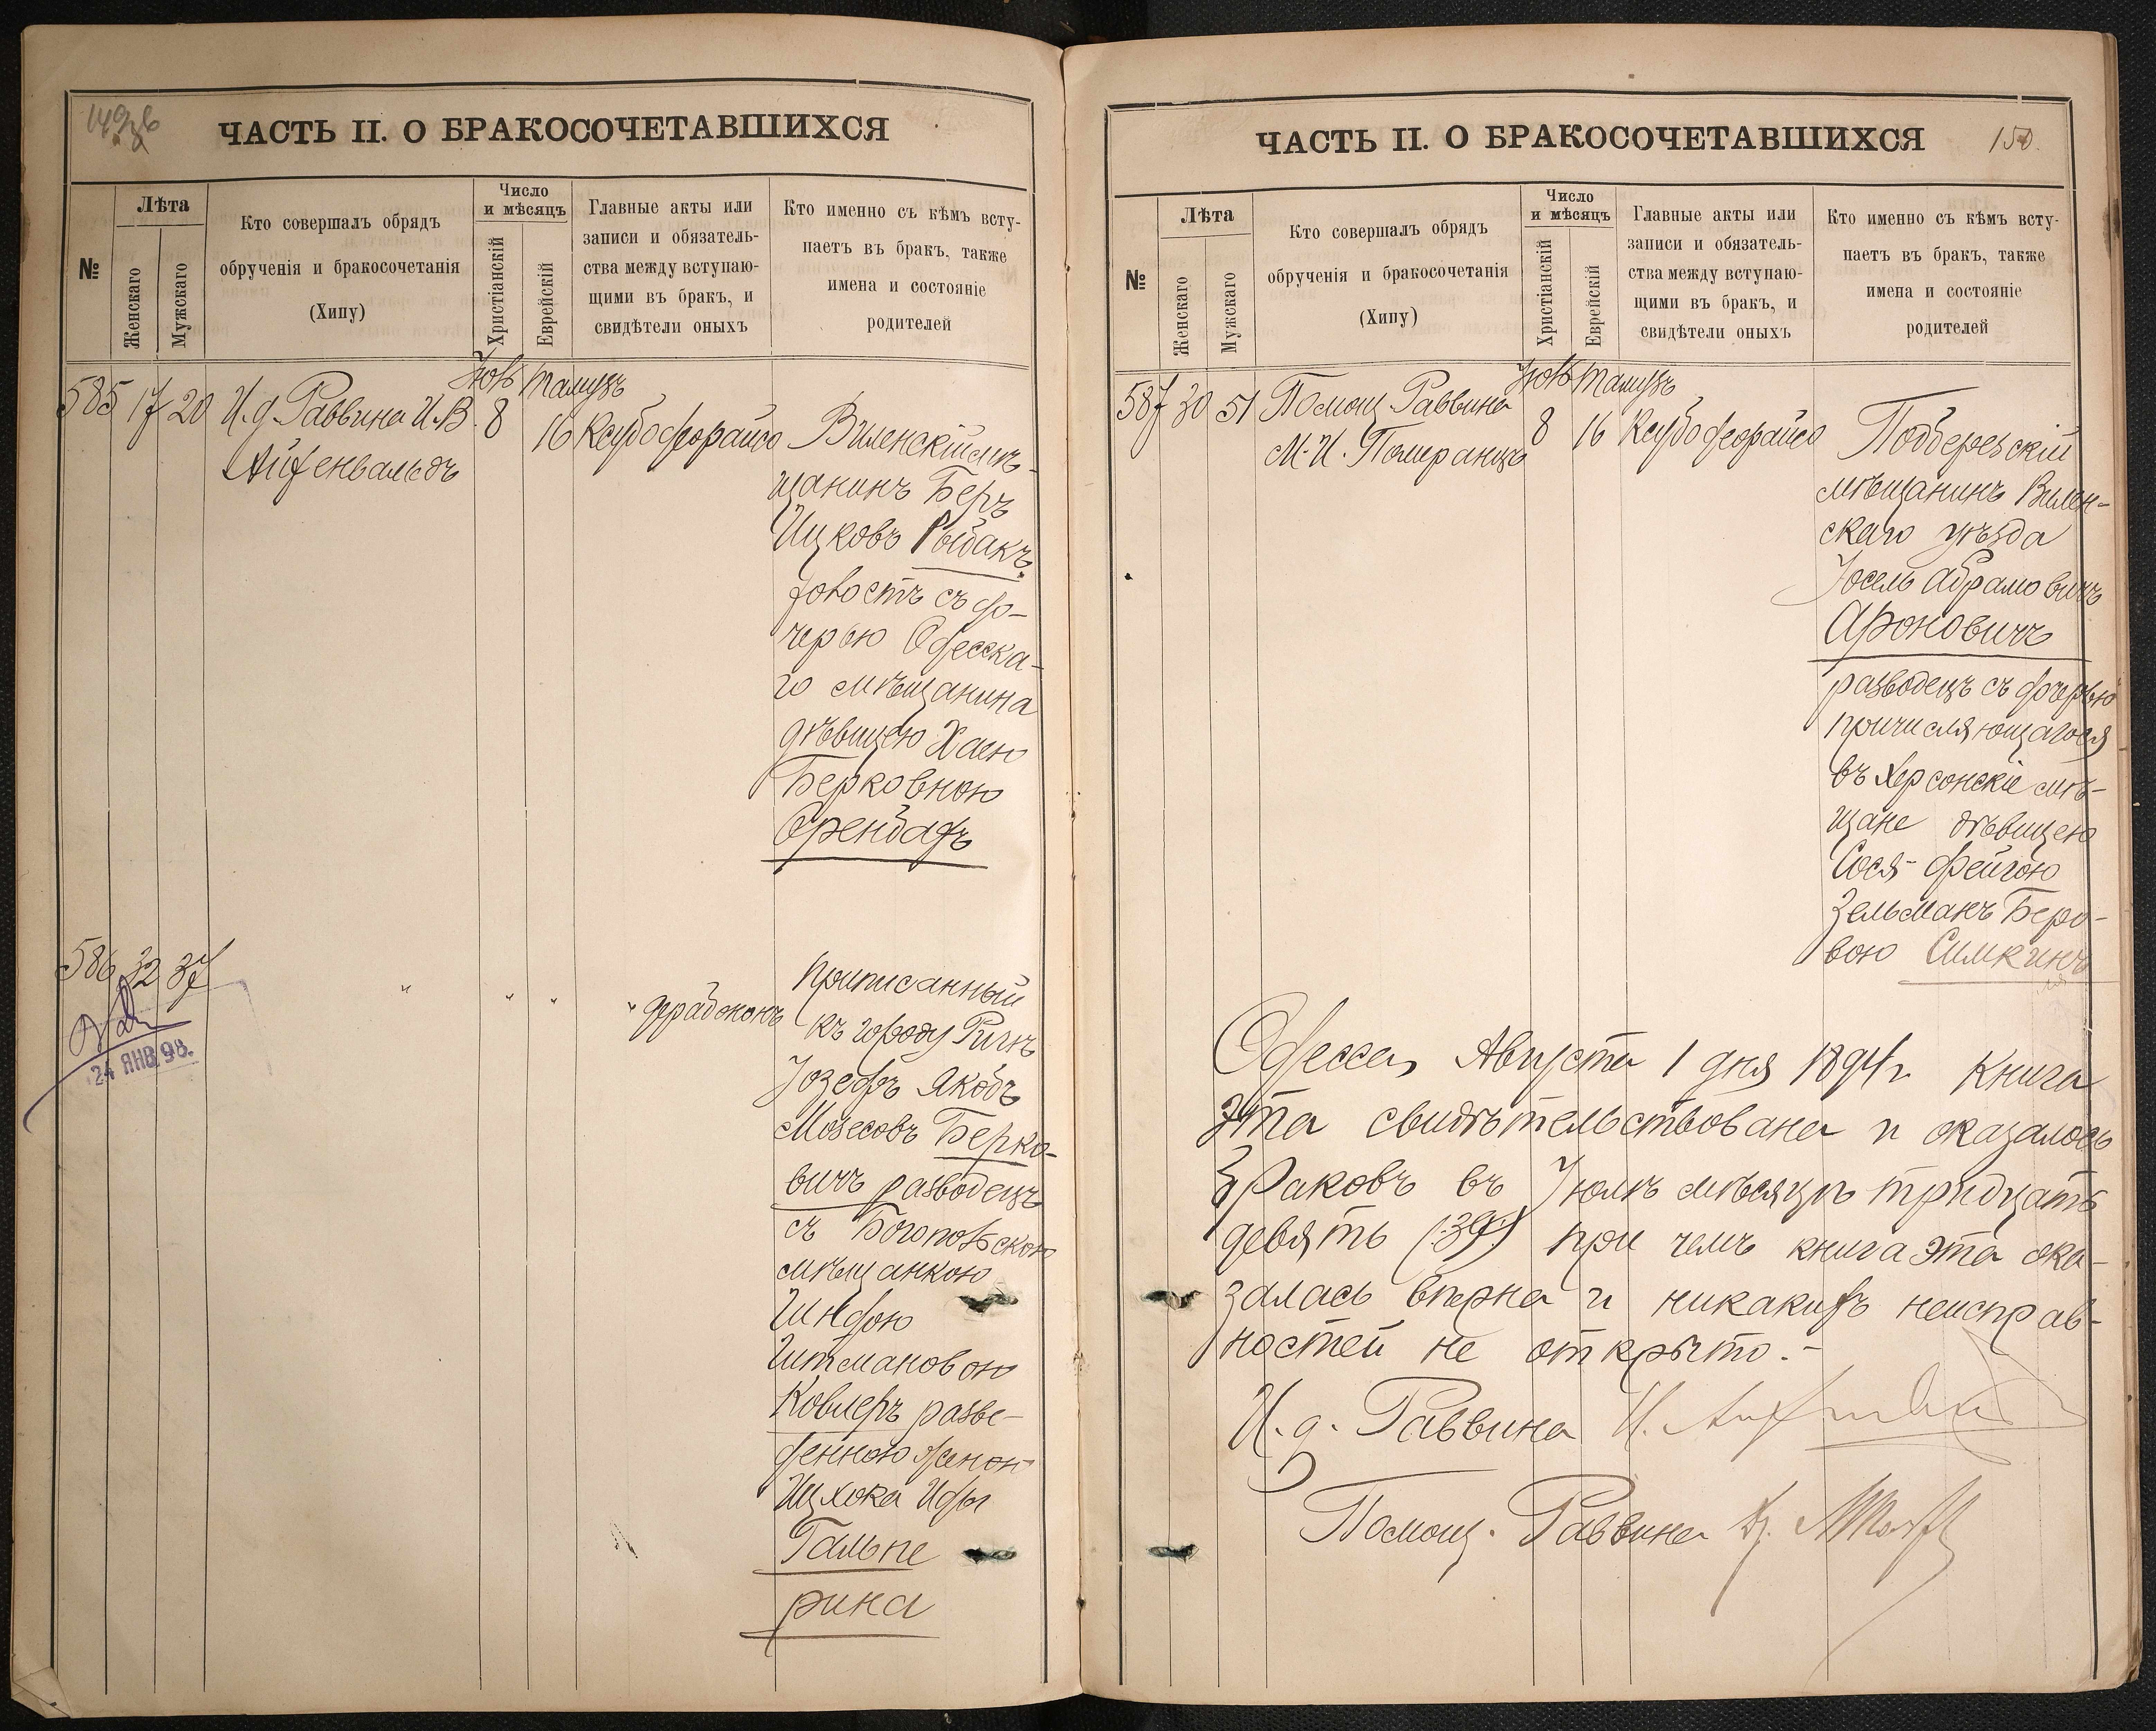 ЧАСТЬ II. О БРАКОСОЧЕТАВШИХСЯ
№
Лѣта
Женскаго
Мужскаго
Кто совершалъ обрядъ
обрученія и бракосочетанія
(Хипу)
Число
и мѣсяцъ
Христіанскій
Еврейскій
Главные акты или
записи и обязатель-
ства между вступаю-
щими въ бракъ, и
свидѣтели оныхъ
Кто именно съ кѣмъ всту-
паетъ въ бракъ, также
имена и состояніе
родителей
585 17 20 И.д. Раввина И.В.
Айхенвальдъ
Тамузъ
8 16
Виленскій мѣ-
щанинъ Беръ
Ицковъ Рыбакъ
холостъ съ до-
черью Одесска-
го мѣщанина
дѣвицею Хаею
Берковною
Оренбахъ
586 32 37
24 ЯНВ. 98.
" " " "
Приписанный
къ городу Ригѣ
Іозефъ Якобъ
Мозесовъ Берко-
вичъ разводецъ
съ Богопольскою
мѣщанкою
Шифрою
Гитмановою
Ковлеръ разве-
денною женою
Ицхока Иосія
Гальпе
рина
ЧАСТЬ II. О БРАКОСОЧЕТАВШИХСЯ
150.
№
Лѣта
Женскаго
Мужскаго
Кто совершалъ обрядъ
обрученія и бракосочетанія
(Хипу)
Число
и мѣсяцъ
Христіанскій
Еврейскій
Главные акты или
записи и обязатель-
ства между вступаю-
щими въ бракъ, и
свидѣтели оныхъ
Кто именно съ кѣмъ всту-
паетъ въ бракъ, также
имена и состояніе
родителей
587 30 51 Помощ. Раввина
М.И. Померанцъ
Тамузъ
8 16
Подберезскій
мѣщанинъ Вилен-
скаго уѣзда
Іосель Абрамовичъ
Ароновичъ
разводецъ съ дочерью
причисляющагося
въ Херсонскіе мѣ-
щане дѣвицею
Сося-Фейгою
Зельманъ Беро-
вою Симкинъ
Одесса, Августа 1 дня 1894 г. Книга
эта свидѣтельствована и оказалось
браковъ въ Іюлѣ мѣсяцѣ тридцать
девять (39) при чемъ книга эта ока-
залась вѣрна и никакихъ неисправ-
ностей не открыто.-
И.д. Раввина
Помощ. Раввина